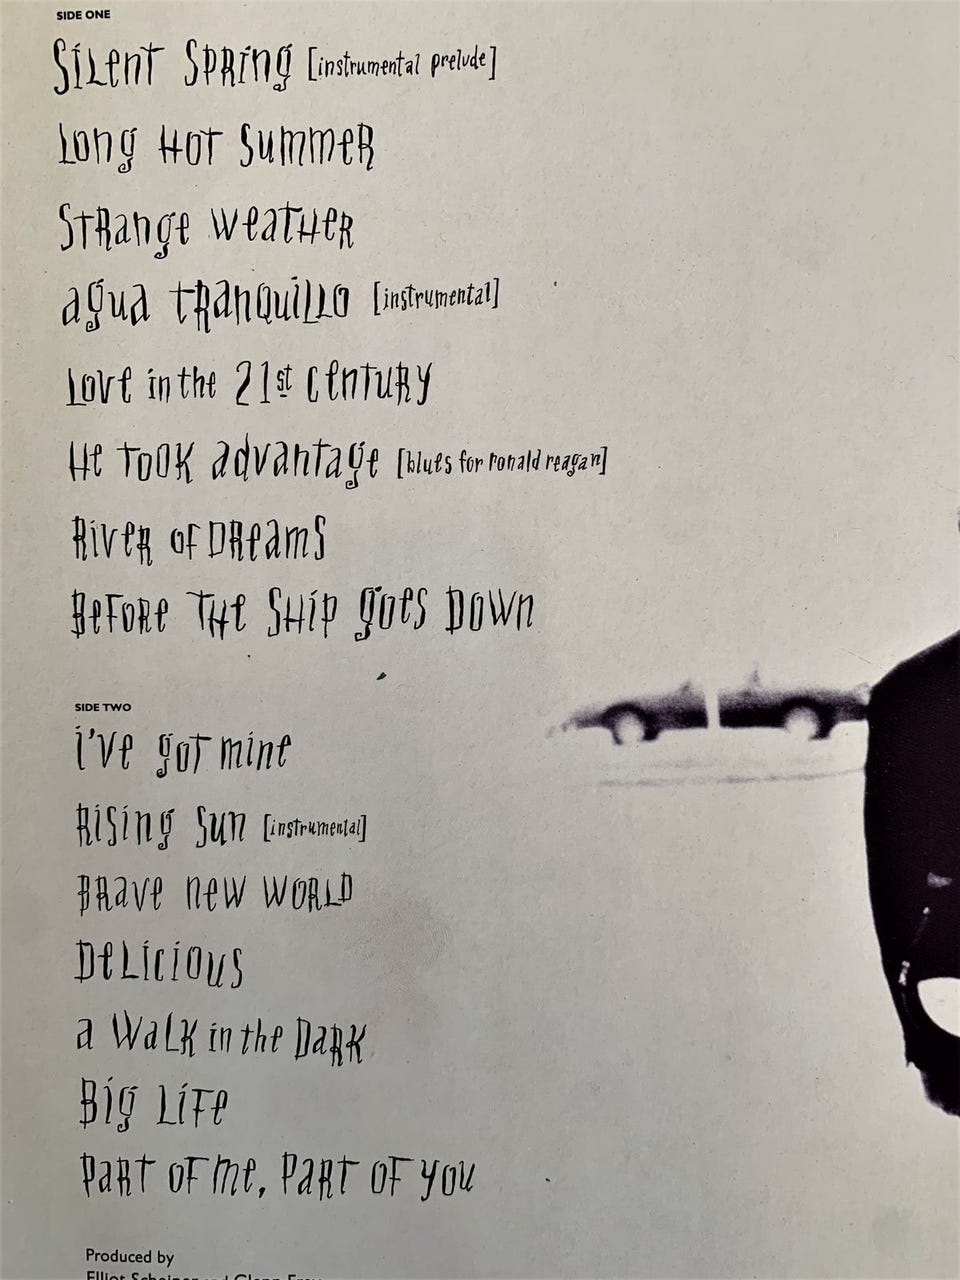 SIDE ONE
Silent Spring [instrumental prelude]
Long Hot Summer
Strange Weather
agua tranquillo [instrumental]
Love in the 21st Century
He Took advantage [blues for ronald reagan]
River of Dreams
Before The Ship goes Down
SIDE TWO
i've got mine
Rising Sun [instrumental]
Brave new World
Delicious
a Walk in the Dark
Big Life
Part of me, Part of you
Produced by
Elliot Scheiner and Glenn Frey